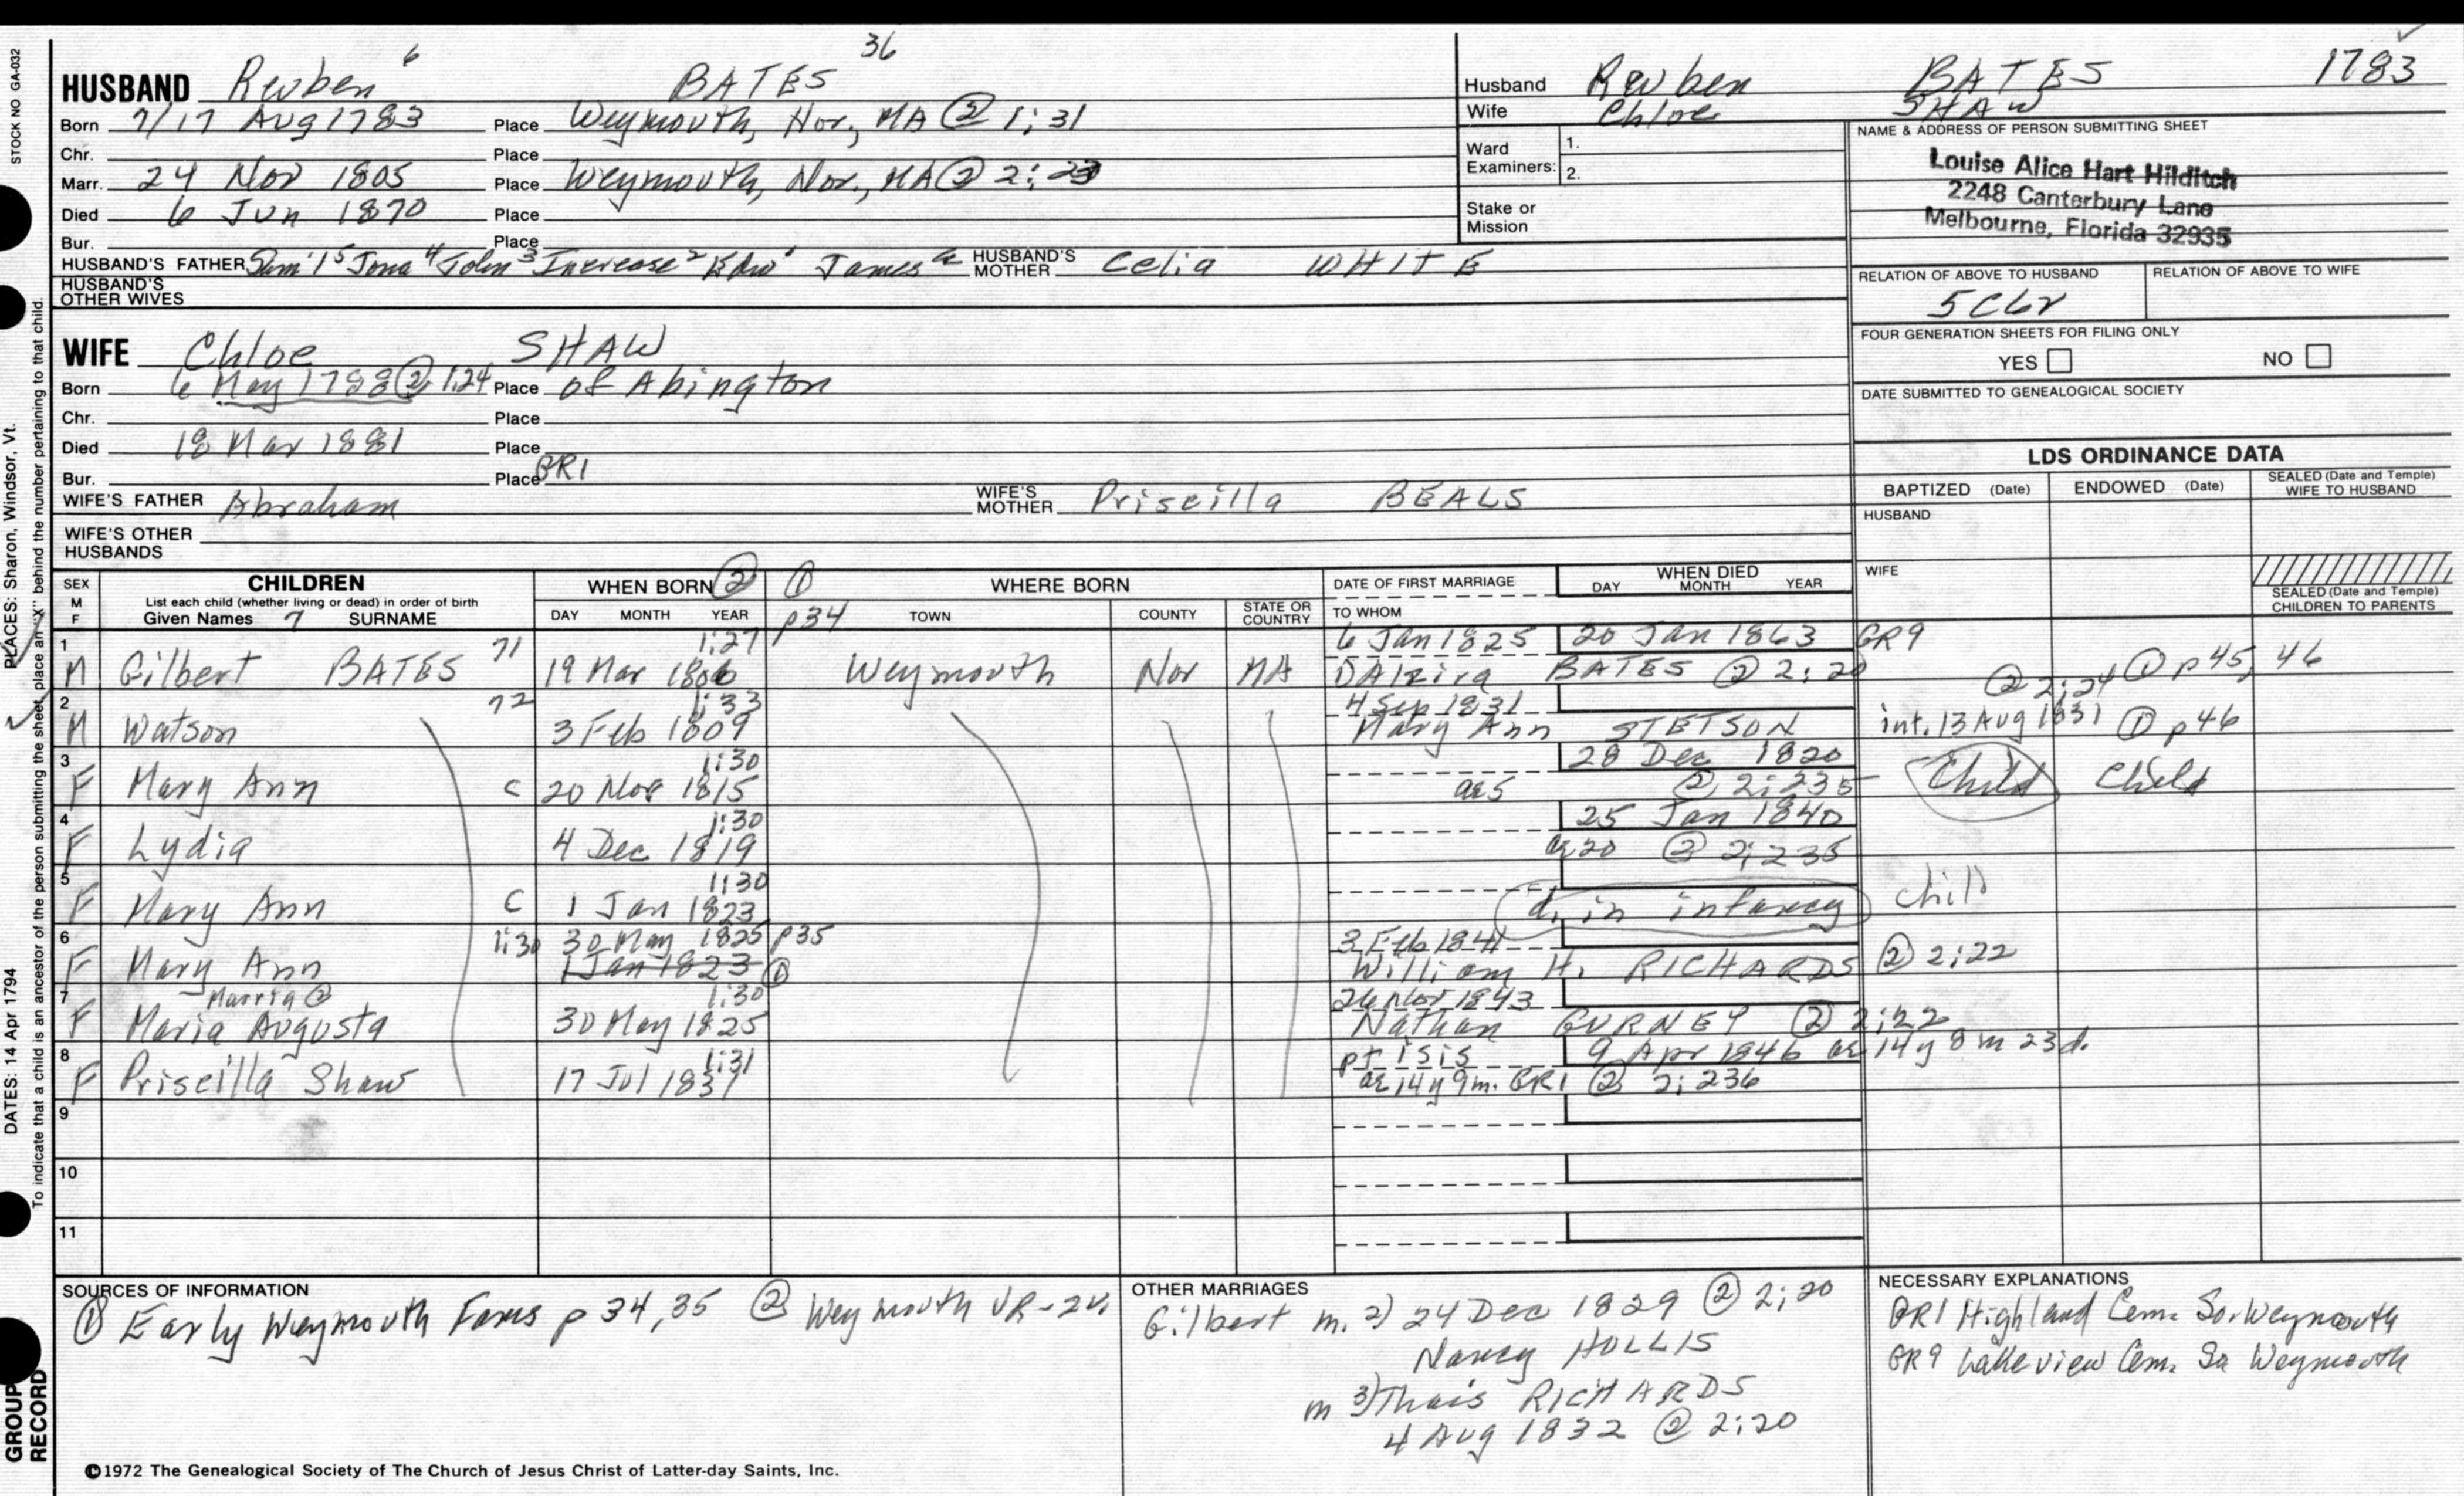 36
HUSBAND Reuben 6 BATES
Born 7/17 Aug 1783 Place Weymouth, Nor, MA ② 1:31
Chr. Place
Marr. 24 Nov 1805 Place Weymouth, Nor., MA ② 2:
Died 6 Jun 1870 Place
Bur. Place
HUSBAND'S FATHER Sam'l 5 Jona 4 John 3 Increase 2 Edw 1 James a HUSBAND'S MOTHER Celia WHITE
HUSBAND'S OTHER WIVES
WIFE Chloe SHAW
Born 6 May 1788 ② 1:24 Place of Abington
Chr. Place
Died 18 Mar 1881 Place
Bur. Place GR1
WIFE'S FATHER Abraham WIFE'S MOTHER Priscilla BEALS
WIFE'S OTHER HUSBANDS
Husband Reuben BATES 1783
Wife Chloe SHAW
Ward Examiners: 1.
2.
Stake or Mission
NAME & ADDRESS OF PERSON SUBMITTING SHEET
Louise Alice Hart Hilditch
2248 Canterbury Lane
Melbourne, Florida 32935
RELATION OF ABOVE TO HUSBAND RELATION OF ABOVE TO WIFE
5C6r
FOUR GENERATION SHEETS FOR FILING ONLY
YES NO
DATE SUBMITTED TO GENEALOGICAL SOCIETY
LDS ORDINANCE DATA
BAPTIZED (Date) ENDOWED (Date) SEALED (Date and Temple) WIFE TO HUSBAND
HUSBAND
WIFE
SEALED (Date and Temple) CHILDREN TO PARENTS
SEX M F CHILDREN WHEN BORN ② ① WHERE BORN DATE OF FIRST MARRIAGE WHEN DIED
List each child (whether living or dead) in order of birth DAY MONTH YEAR
Given Names 7 SURNAME DAY MONTH YEAR p34 TOWN COUNTY STATE OR COUNTRY TO WHOM
1 71 1:27 6 Jan 1825 20 Jan 1863 GR9
M Gilbert BATES 19 Mar 1806 Weymouth Nor MA DAlzira BATES ② 2:20 ② 2:24 ① p45, 46
2 72 1:33 4 Sep 1831
M Watson 3 Feb 1809 Mary Ann STETSON int. 13 Aug 1831 ① p46
3 1:30 28 Dec 1820
F Mary Ann C 20 Nov 1815 ae5 ② 2:235 Child Child
4 1:30 25 Jan 1840
F Lydia 4 Dec 1819 ae20 ② 2:235
5 1:30
F Mary Ann C 1 Jan 1823 d. in infancy Chil
6 1:30 30 May 1825 p35 3 Feb 1841
F Mary Ann 1 Jan 1823 ① William H. RICHARDS ② 2:22
7 Marria ② 1:30 26 Nov 1843
F Maria Augusta 30 May 1825 Nathan GURNEY ② 2:22
8 1:31 ptisis 9 Apr 1846 ae 14y 8m 23d.
F Priscilla Shaw 17 Jul 1831 ae 14y 9m. GR1 ② 2:236
9
10
11
SOURCES OF INFORMATION
① Early Weymouth Fams p 34, 35 ② Weymouth VR-2v.
OTHER MARRIAGES
Gilbert m. 2) 24 Dec 1829 ② 2:20
Nancy HOLLIS
m 3) Thais RICHARDS
4 Aug 1832 ② 2:20
NECESSARY EXPLANATIONS
GR1 Highland Cem. So. Weymouth
GR9 Lakeview Cem. So Weymouth
©1972 The Genealogical Society of The Church of Jesus Christ of Latter-day Saints, Inc.
STOCK NO GA-032
PLACES: Sharon, Windsor, Vt.
DATES: 14 Apr 1794
To indicate that a child is an ancestor of the person submitting the sheet, place an "X" behind the number pertaining to that child.
GROUP RECORD